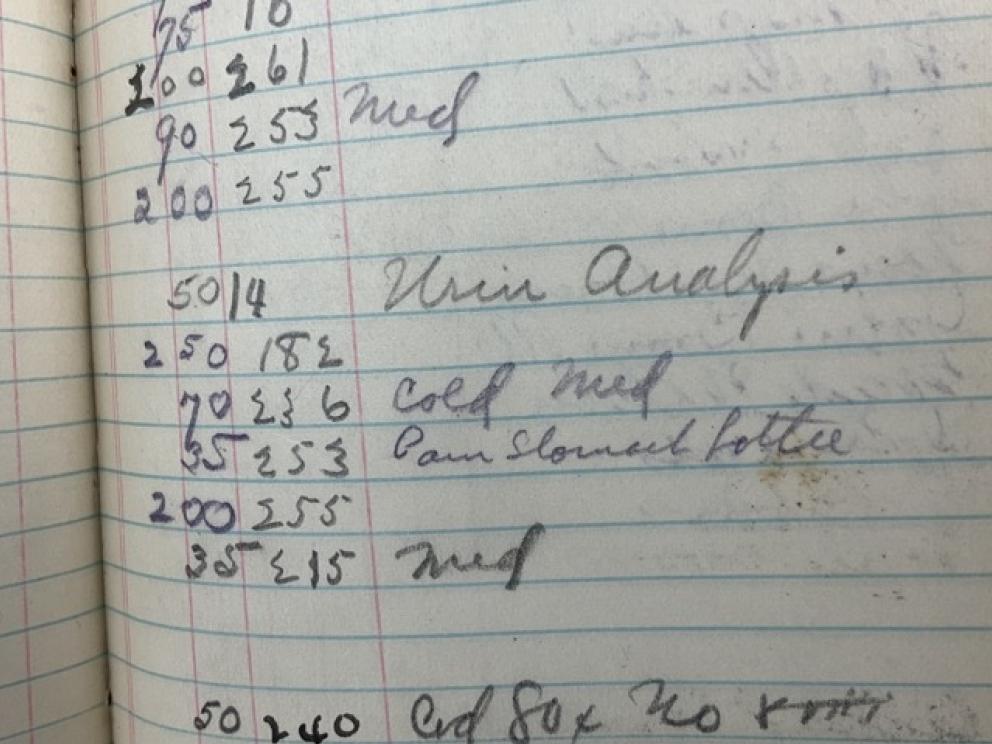 75 10
200 261
90 253 Med
200 255
50 14 Urin Analysis
250 182
70 236 Cold Med
35 253 Pain Stomach bottle
200 255
35 215 Med
50 240 80 No